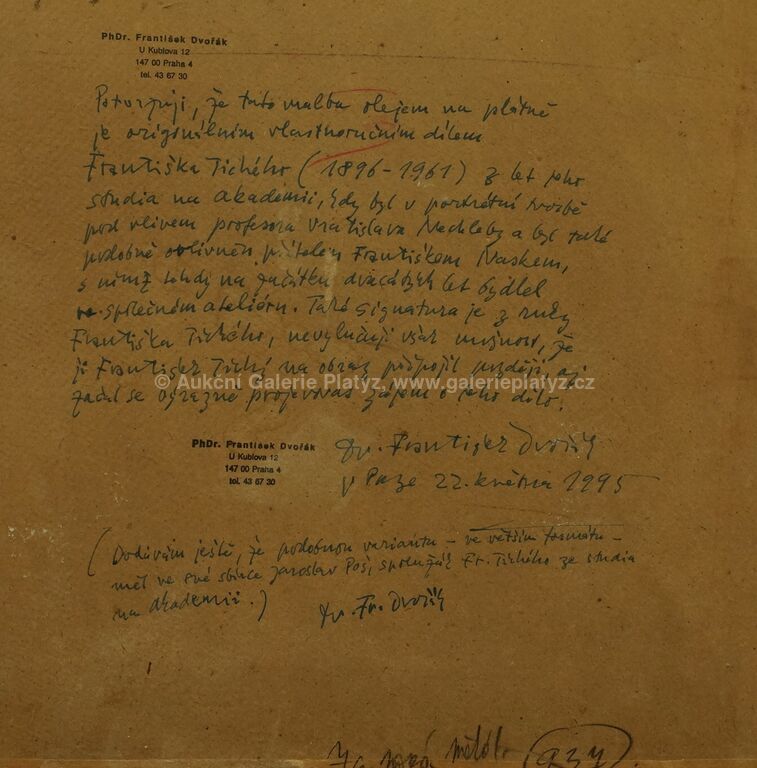 PhDr. František Dvořák
U Kublova 12
147 00 Praha 4
tel. 43 67 30
Potvrzuji, že tato malba olejem na plátně
je originálním vlastnoručním dílem
Františka Tichého (1896-1961) z let jeho
studia na akademii, kdy byl v portrétní tvorbě
pod vlivem profesora Vratislava Nechleby a byl také
podobně ovlivněn přítelem Františkem Naskem,
s nímž tehdy na začátku dvacátých let bydlel
ve společném atelieru. Také signatura je z ruky
Františka Tichého, nevylučuji však možnost, že
ji František Tichý na obraz připojil později, až
začal se výrazně projevovat zájem o jeho dílo.
© Aukční Galerie Platýz, www.galerieplatyz.cz
PhDr. František Dvořák
U Kublova 12
147 00 Praha 4
tel. 43 67 30
Dr. František Dvořák
V Praze 22. května 1995
(Dodávám ještě, že podobnou variantu - ve větším formátu -
měl ve své sbírce Jaroslav Poš, spolužák Fr. Tichého ze studia
na akademii.)
Dr. Fr. Dvořák